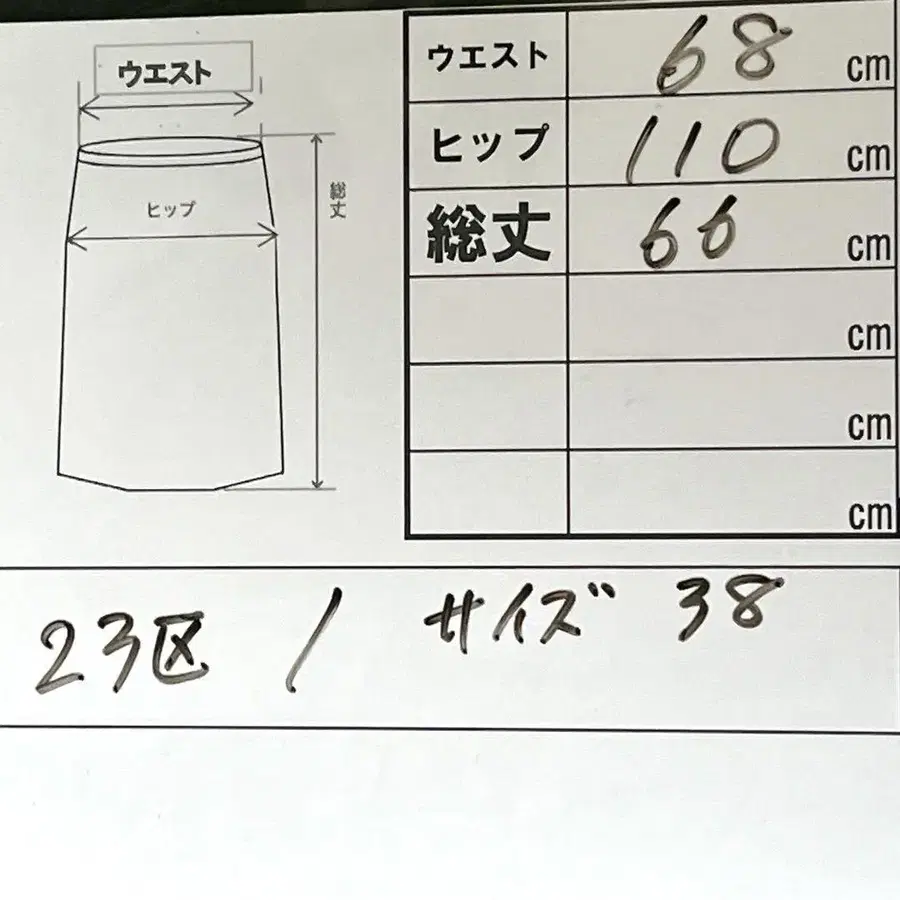 ウエスト
ヒップ
総丈
ウエスト 68 cm
ヒップ 110 cm
総丈 66 cm
cm
cm
cm
23区 / サイズ 38